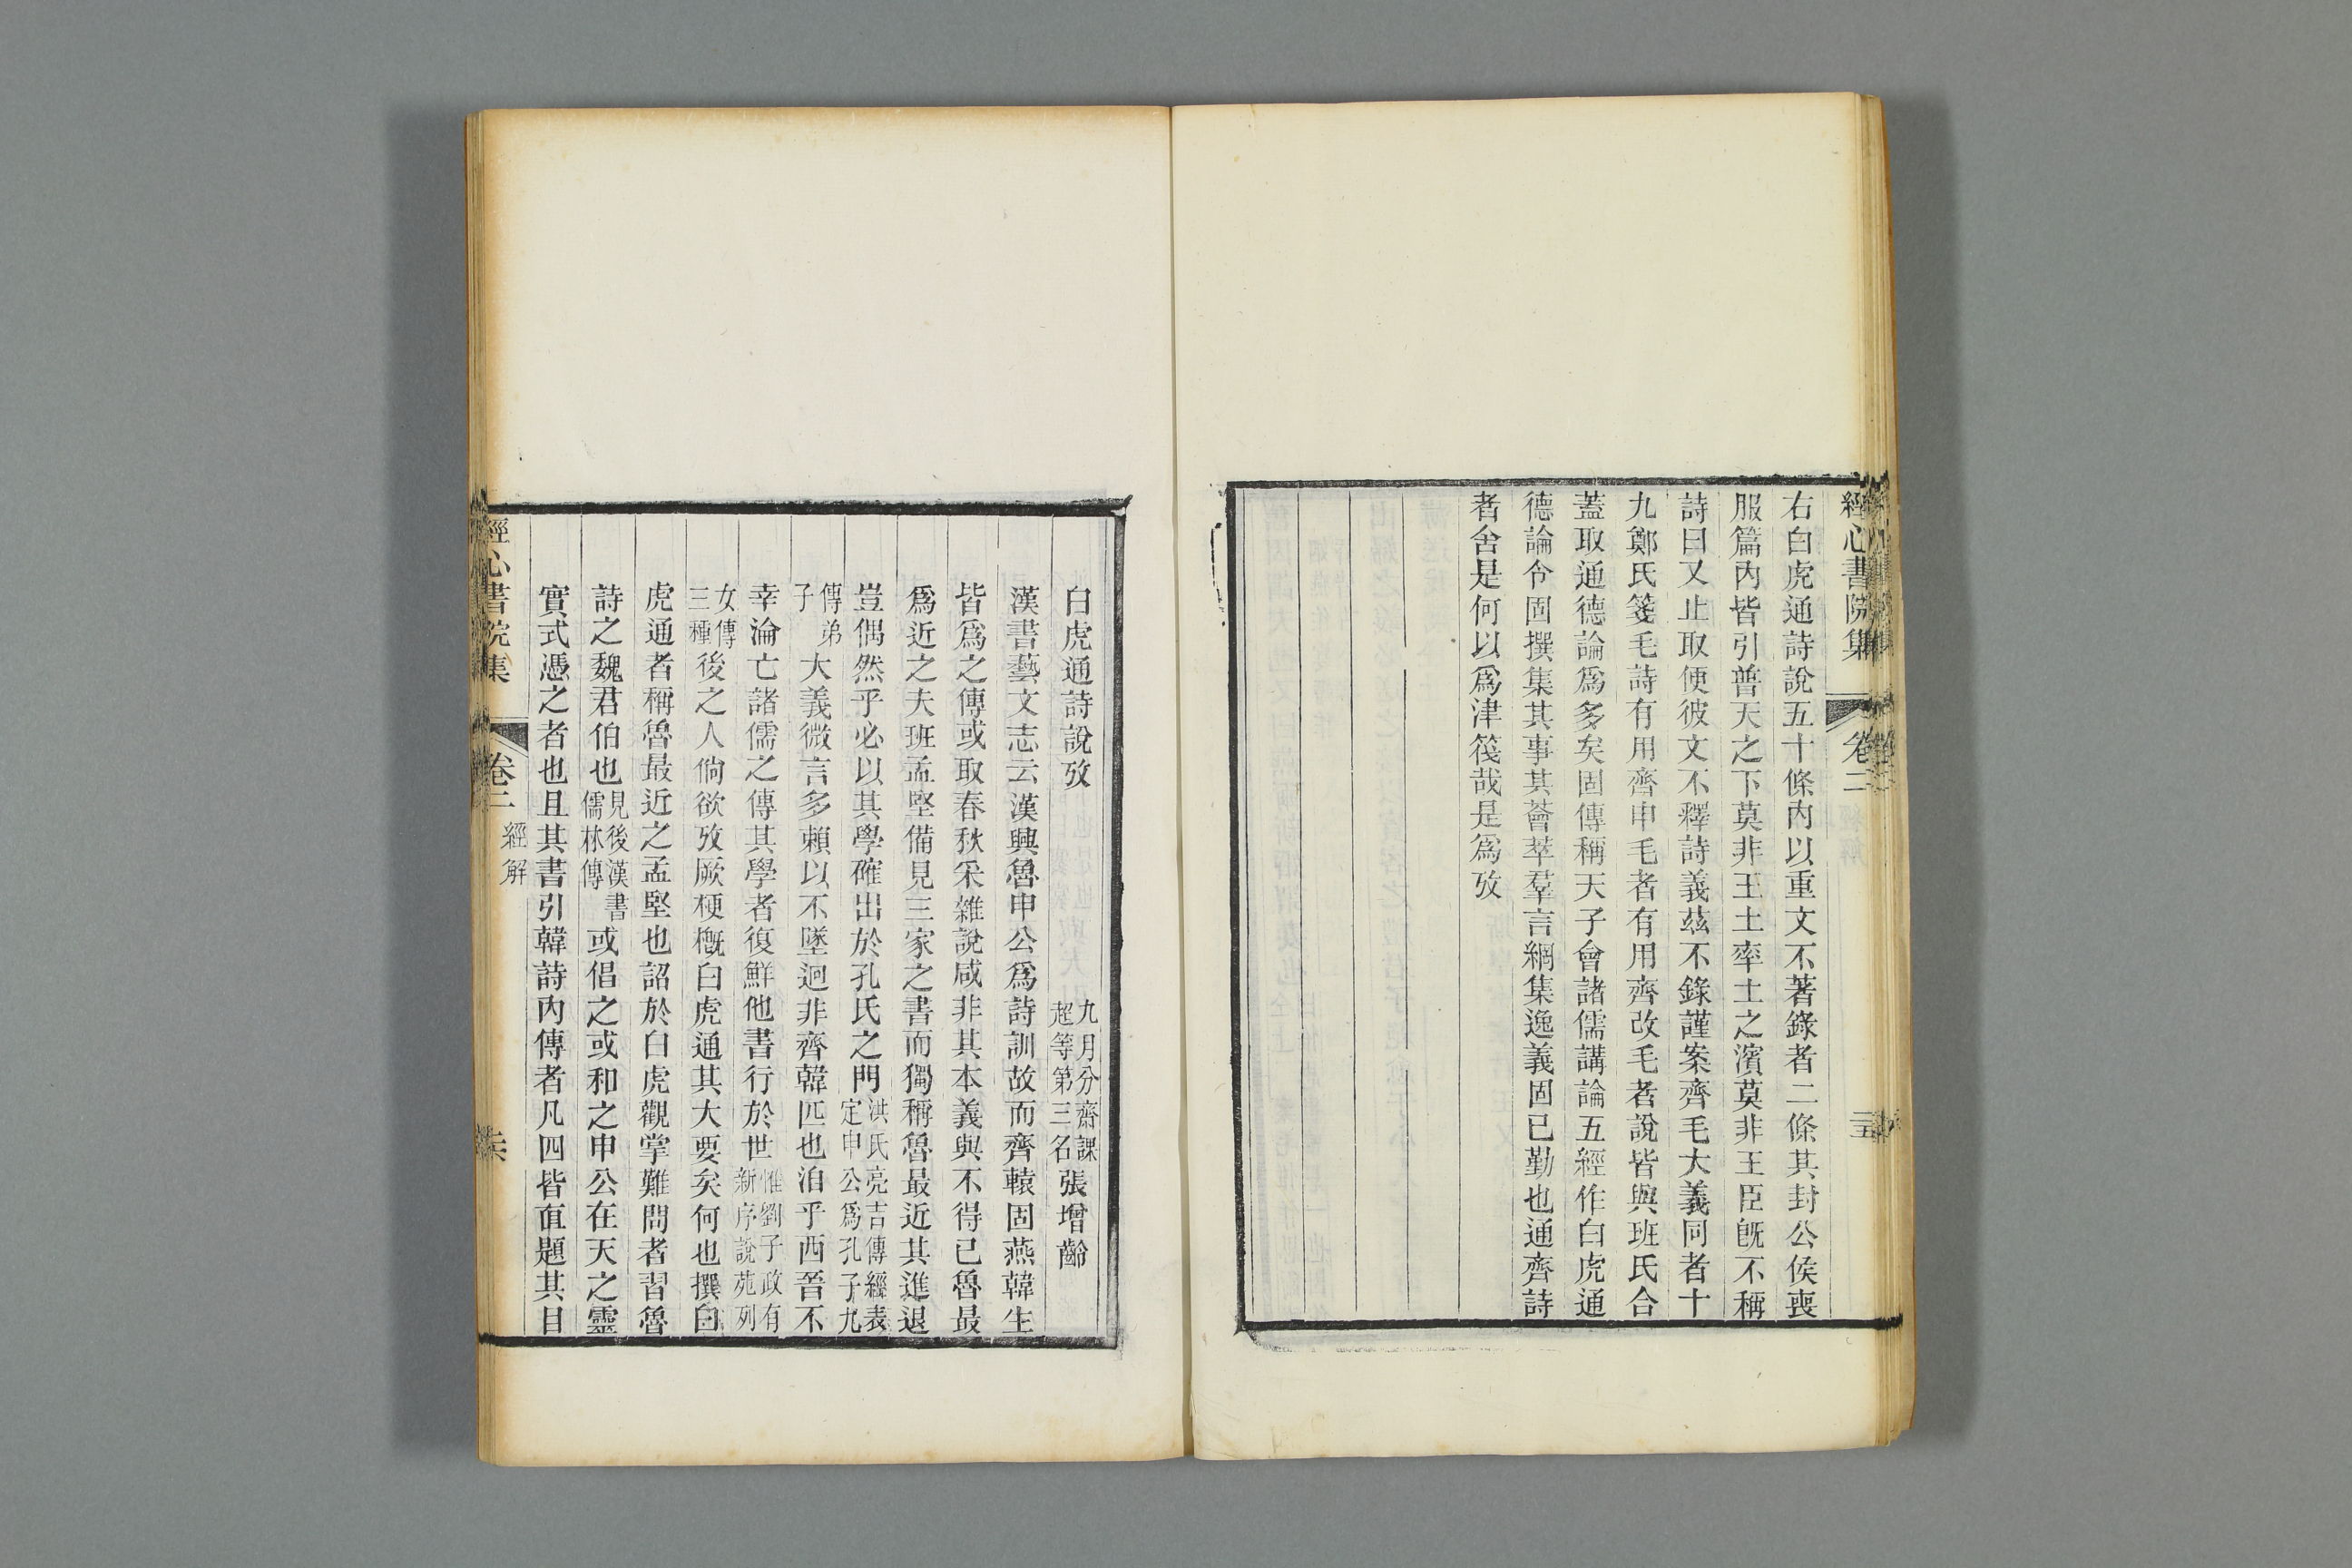 經心書院集 卷二
右白虎通詩說五十條內以重文不著錄者二條其封公侯喪
服篇內皆引普天之下莫非王土率土之濱莫非王臣旣不稱
詩曰又止取便彼文不釋詩義茲不錄謹案齊毛大義同者十
九鄭氏箋毛詩有用齊申毛者有用齊改毛者說皆與班氏合
蓋取通德論爲多矣固傳稱天子會諸儒講論五經作白虎通
德論令固撰集其事其薈萃羣言網集逸義固已勤也通齊詩
者舍是何以爲津筏哉是爲攷
白虎通詩說攷
九月分齋課
超等第三名
張增齡
漢書藝文志云漢興魯申公爲詩訓故而齊轅固燕韓生
皆爲之傳或取春秋采雜說咸非其本義與不得已魯最
爲近之夫班孟堅備見三家之書而獨稱魯最近其進退
豈偶然乎必以其學確出於孔氏之門洪氏亮吉傳經表定申公爲孔子九
傳弟子大義微言多賴以不墜迥非齊韓匹也洎乎西晉不
幸淪亡諸儒之傳其學者復鮮他書行於世惟劉子政有新序說苑列
女傳三種後之人倘欲攷厥梗槪白虎通其大要矣何也撰白
虎通者稱魯最近之孟堅也詔於白虎觀掌難問者習魯
詩之魏君伯也見後漢書儒林傳或倡之或和之申公在天之靈
實式憑之者也且其書引韓詩內傳者凡四皆直題其目
經心書院集 卷二 經解